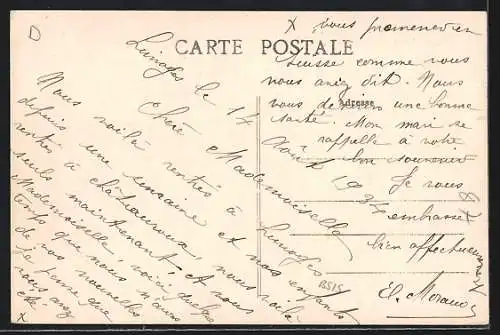 D
CARTE POSTALE
Adresse
Limoges le 14 Août 1934
Chère Mademoiselle
Nous voilà rentrés à Limoges
depuis une semaine et mes enfants
rentrés à Châteauroux, nous voilà
seuls maintenant. A vous
Mademoiselle, voici
temps que nous
de nos nouvelles
je pense que
vous avez
été x
x vous promener en
Suisse comme vous
nous aviez dit. Nous
vous désirons une bonne
santé. Mon mari se
rappelle à votre
bon souvenir
Je vous
embrasse
bien affectueusement
El. Moraud
BS15